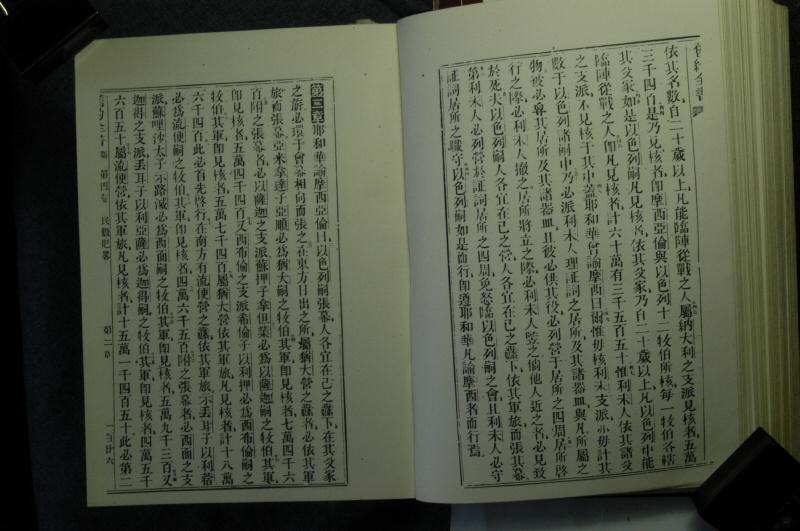 依其名數自二十歲以上凡能臨陣從戰之人屬納大利之支派見核者五萬
三千四百是乃見核者即摩西亞倫與以色列十二牧伯所核每一牧伯各轄
其父家如是以色列嗣凡見核者依其父家乃自二十歲以上凡以色列中能
臨陣從戰之人即凡見核者計六十萬有三千五百五十惟利未人依其諸父
之支派不見核于其中蓋耶和華曾諭摩西曰爾惟毋核利未支派亦毋計其
數于以色列諸嗣中乃必派利未人理証詞之居所及其諸器皿與凡所屬之
物彼必舁其居所及其諸器皿且彼必供其役必列營于居所之四周居所啓
行之際必利未人撤之居所將立之際必利未人竪之倘他人近之者必見致
於死夫以色列嗣人各宜在己之營人各宜在己之纛下依其軍旅而張其幕
第利未人必列營於証詞居所之四周免怒臨以色列嗣之會且利未人必守
証詞居所之職守以色列嗣如是而行即遵耶和華凡諭摩西者而行焉
第二章耶和華諭摩西亞倫曰以色列嗣張幕人各宜在己之纛下在其父家
之旂必環于會幕相向而張之在東方日出之所屬猶大營之纛者必依其軍
旅而張幕亞米拿達子亞順必爲猶大嗣之牧伯其軍即見核者七萬四千六
百附之張幕者必以薩迦之支派蘇押子拿但業必爲以薩迦嗣之牧伯其軍
即見核者五萬四千四百又西布倫之支派希倫子以利押必爲西布倫嗣之
牧伯其軍即見核者五萬七千四百屬猶大營依其軍旅凡見核者計十八萬
六千四百此必首先啓行在南方有流便營之纛依其軍旅示丟耳子以利蓿
必爲流便嗣之牧伯其軍即見核者四萬六千五百附之張幕者必西面之支
派蘇哩沙太子示路滅必爲西面嗣之牧伯其軍即見核者五萬九千三百又
迦得之支派丟耳子以利亞薩必爲迦得嗣之牧伯其軍即見核者四萬五千
六百五十屬流便營依其軍旅凡見核者計十五萬一千四百五十此必第二
第四卷 民數紀畧 第二章 一百廿六